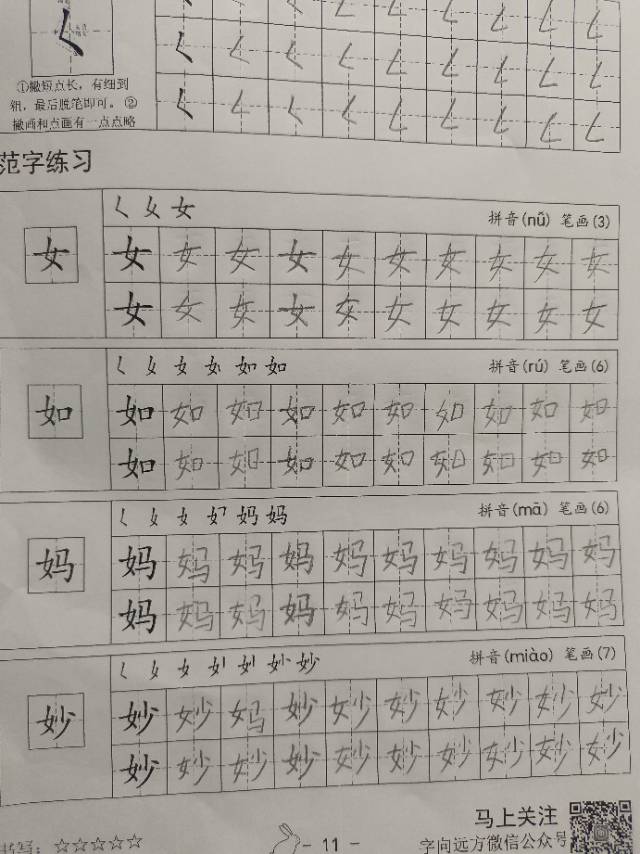 ①撇短点长，有细到
粗，最后脱笔即可。②
撇画和点画有一点点略
范字练习
女 拼音(nǚ) 笔画(3)
女
女 女 女 女 女 女 女 女 女 女
女 女 女 女 女 女 女 女 女 女
女 如 拼音(rú) 笔画(6)
如
如 如 如 如 如 如 如 如 如 如
如 如 如 如 如 如 如 如 如 如
女 妈 拼音(mā) 笔画(6)
妈
妈 妈 妈 妈 妈 妈 妈 妈 妈 妈
妈 妈 妈 妈 妈 妈 妈 妈 妈 妈
女 妙 拼音(miào) 笔画(7)
妙
妙 妙 妈 妙 妙 妙 妙 妙 妙 妙
妙 妙 妙 妙 妙 妙 妙 妙 妙 妙
马上关注
书写：☆☆☆☆☆ - 11 - 字向远方微信公众号